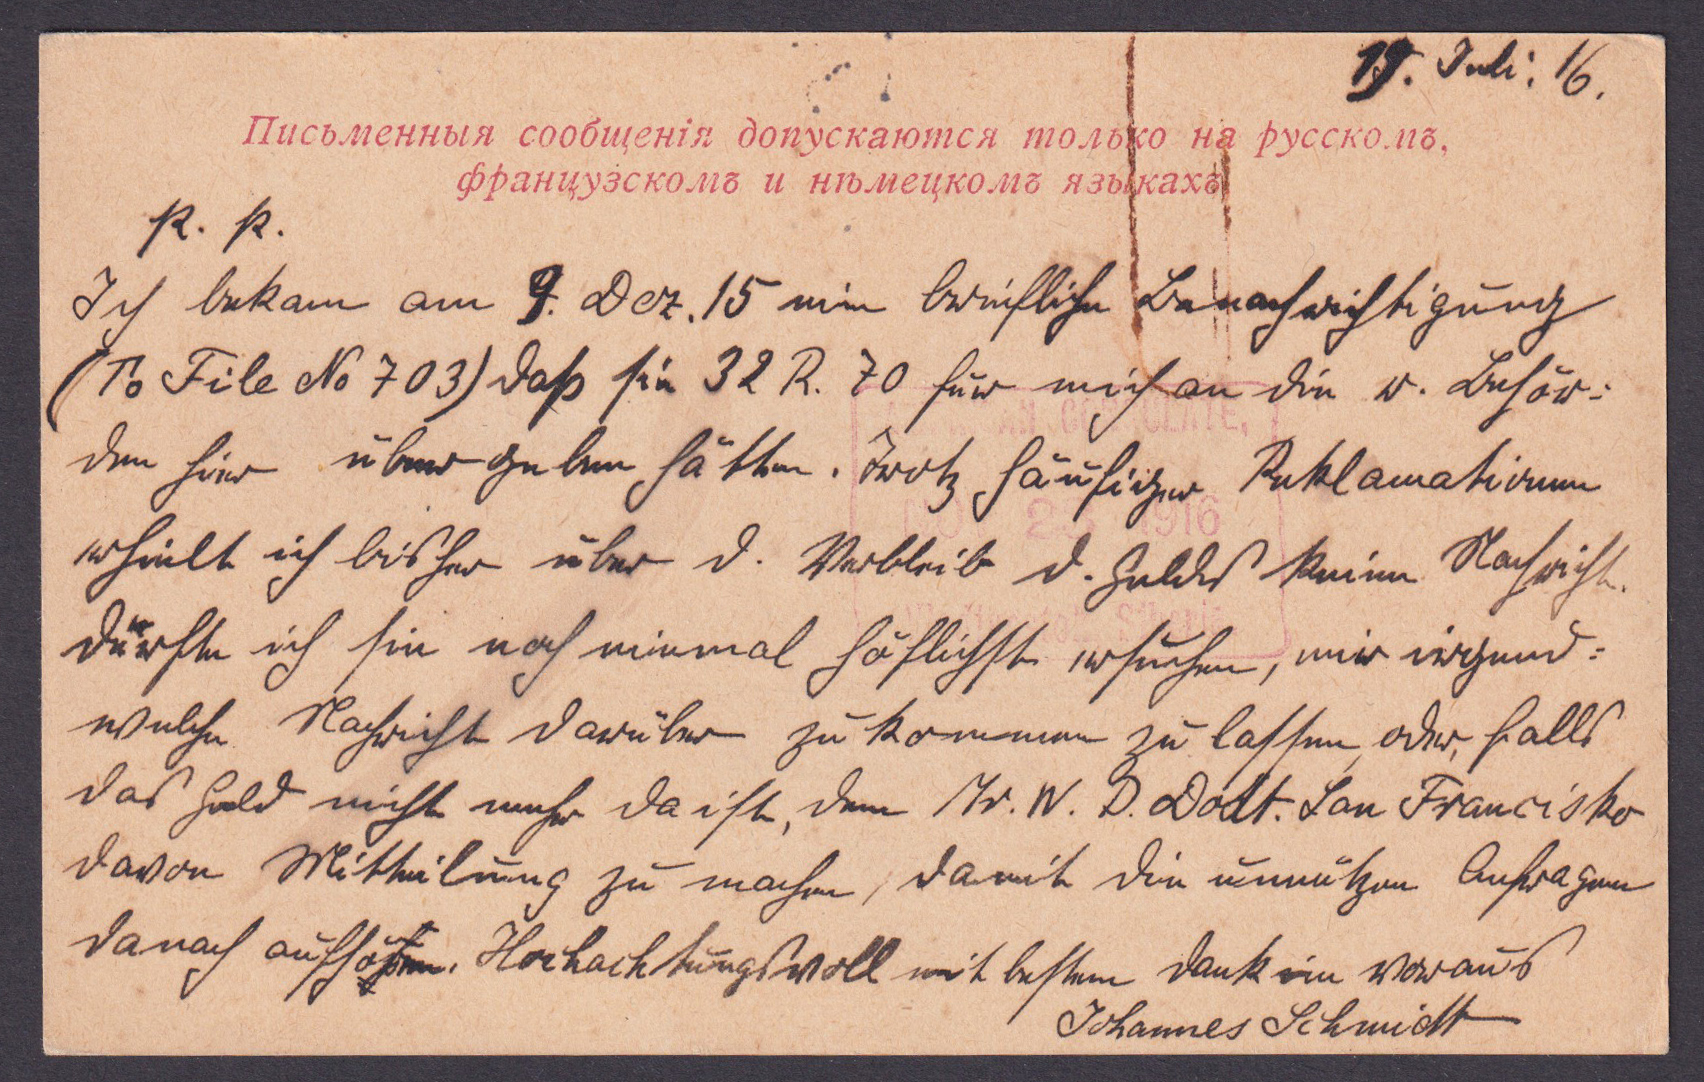 19. Juli. 16.
Письменныя сообщенія допускаются только на русскомъ,
французскомъ и нѣмецкомъ языкахъ
p. p.
Ich bekam am 9. Dez. 15 eine briefliche Benachrichtigung
(To File No 703) daß sie 32 R. 70 für mich an die r. Behör-
den hier übergeben hätten. Trotz häufiger Reklamationen
erhielt ich bisher über d. Verbleib d. Geldes keine Nachricht.
Dürfte ich sie noch einmal höflichst ersuchen, mir irgend-
welche Nachricht darüber zukommen zu lassen, oder, falls
das Geld nicht mehr da ist, dem Mr. W. D. Dodt. San Francisko
davon Mitteilung zu machen, damit die unnützen Anfragen
danach aufhören. Hochachtungsvoll mit bestem Dank im voraus
Johannes Schmidt
AMERICAN CONSULATE,
1916
Siberia